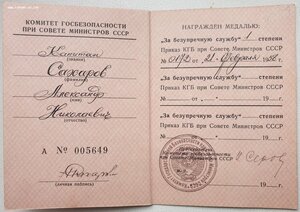 КОМИТЕТ ГОСБЕЗОПАСНОСТИ
ПРИ СОВЕТЕ МИНИСТРОВ СССР
Капитан
(звание)
Сахаров
(фамилия)
Александр
(имя)
Николаевич
(отчество)
А № 005649
(личная подпись)
НАГРАЖДЕН МЕДАЛЬЮ:
„За безупречную службу" 1 степени
Приказ КГБ при Совете Министров СССР
№ от 21 февраля 1958 г.
„За безупречную службу" степени
Приказ КГБ при Совете Министров СССР
№ от „ " 19 г.
„За безупречную службу" степени
Приказ КГБ при Совете Министров СССР
№ от „ " 19 г.
госбезопасности
Совете Министров СССР
И. Серов